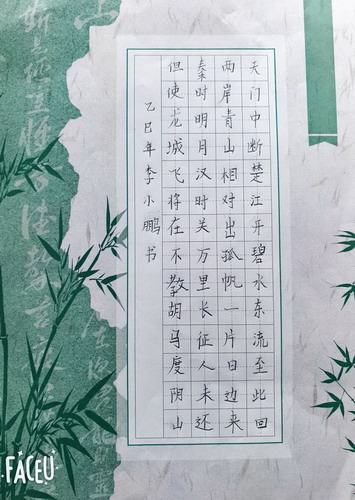 天门中断楚江开碧水东流至此回
两岸青山相对出孤帆一片日边来
秦时明月汉时关万里长征人未还
但使龙城飞将在不教胡马度阴山
乙巳年李小鹏书
FACEU